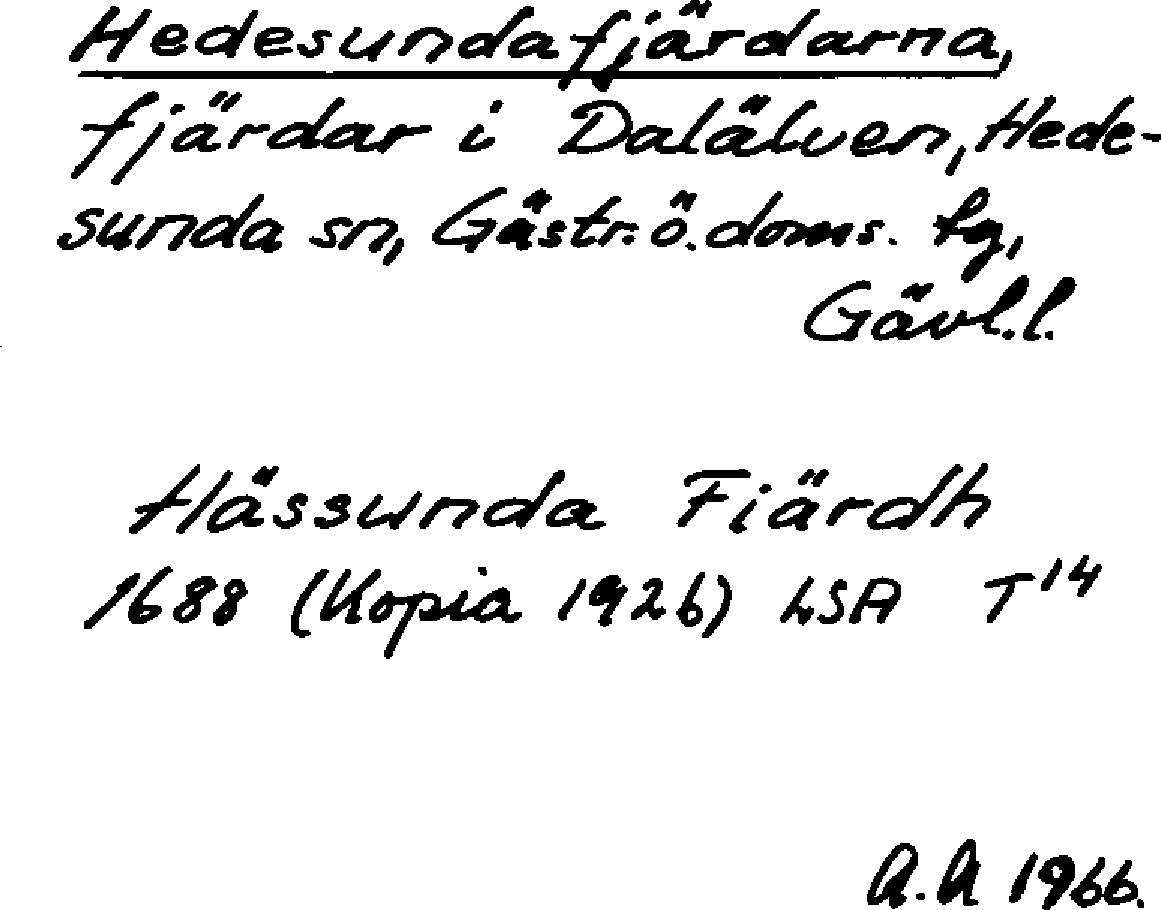 Hedesundafjärdarna,
fjärdar i Dalälven, Hede-
sunda sn, Gästr. ö. doms. tg,
Gävl. l.
Hässunda Fiärdh
1688 (Kopia 1926) LSA T14
A. A 1966.